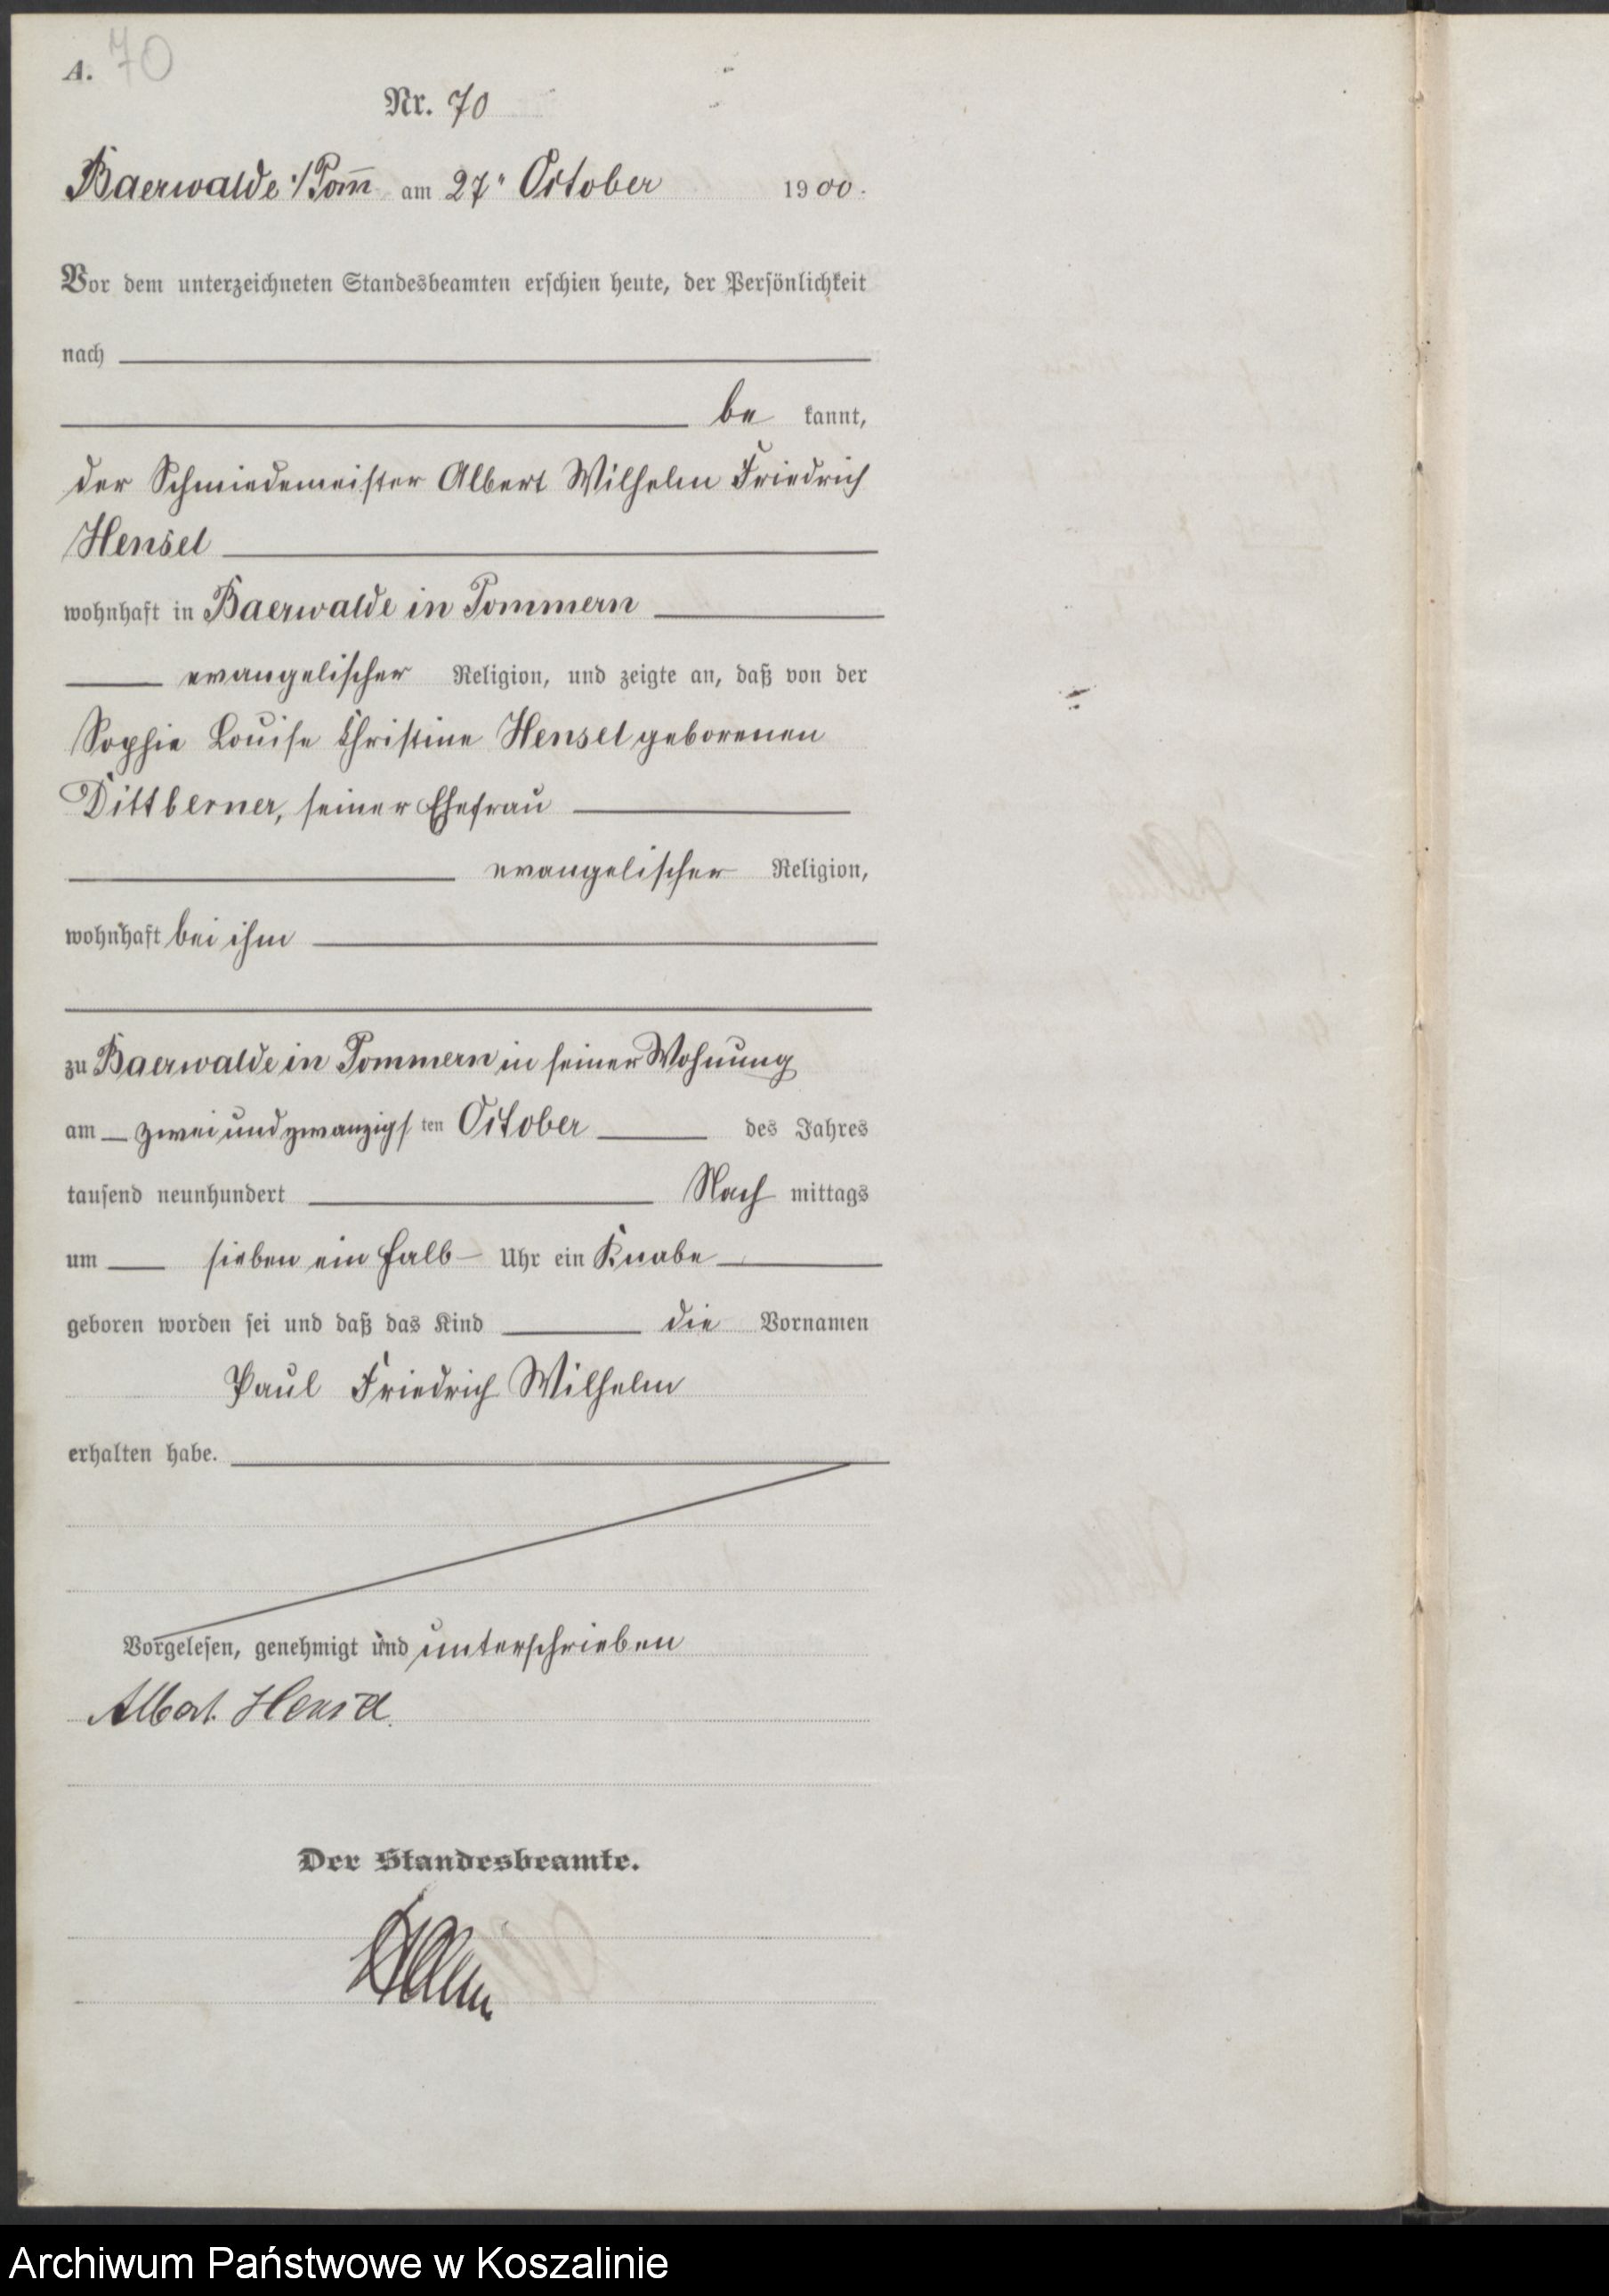 A. 70
Nr. 70
Baerwalde i/Pom̅ am 27" October 1900.
Vor dem unterzeichneten Standesbeamten erschien heute, der Persönlichkeit
nach
be kannt,
der Schmiedemeister Albert Wilhelm Friedrich
Hensel
wohnhaft in Baerwalde in Pommern
evangelischer Religion, und zeigte an, daß von der
Sophie Louise Christine Hensel geborenen
Dittberner, seiner Ehefrau
evangelischer Religion,
wohnhaft bei ihm
zu Baerwalde in Pommern in seiner Wohnung
am zwei und zwanzigsten October des Jahres
tausend neunhundert Nach mittags
um sieben ein halb Uhr ein Knabe
geboren worden sei und daß das Kind die Vornamen
Paul Friedrich Wilhelm
erhalten habe.
Vorgelesen, genehmigt und unterschrieben
Albert Hensel.
Der Standesbeamte.
Archiwum Państwowe w Koszalinie